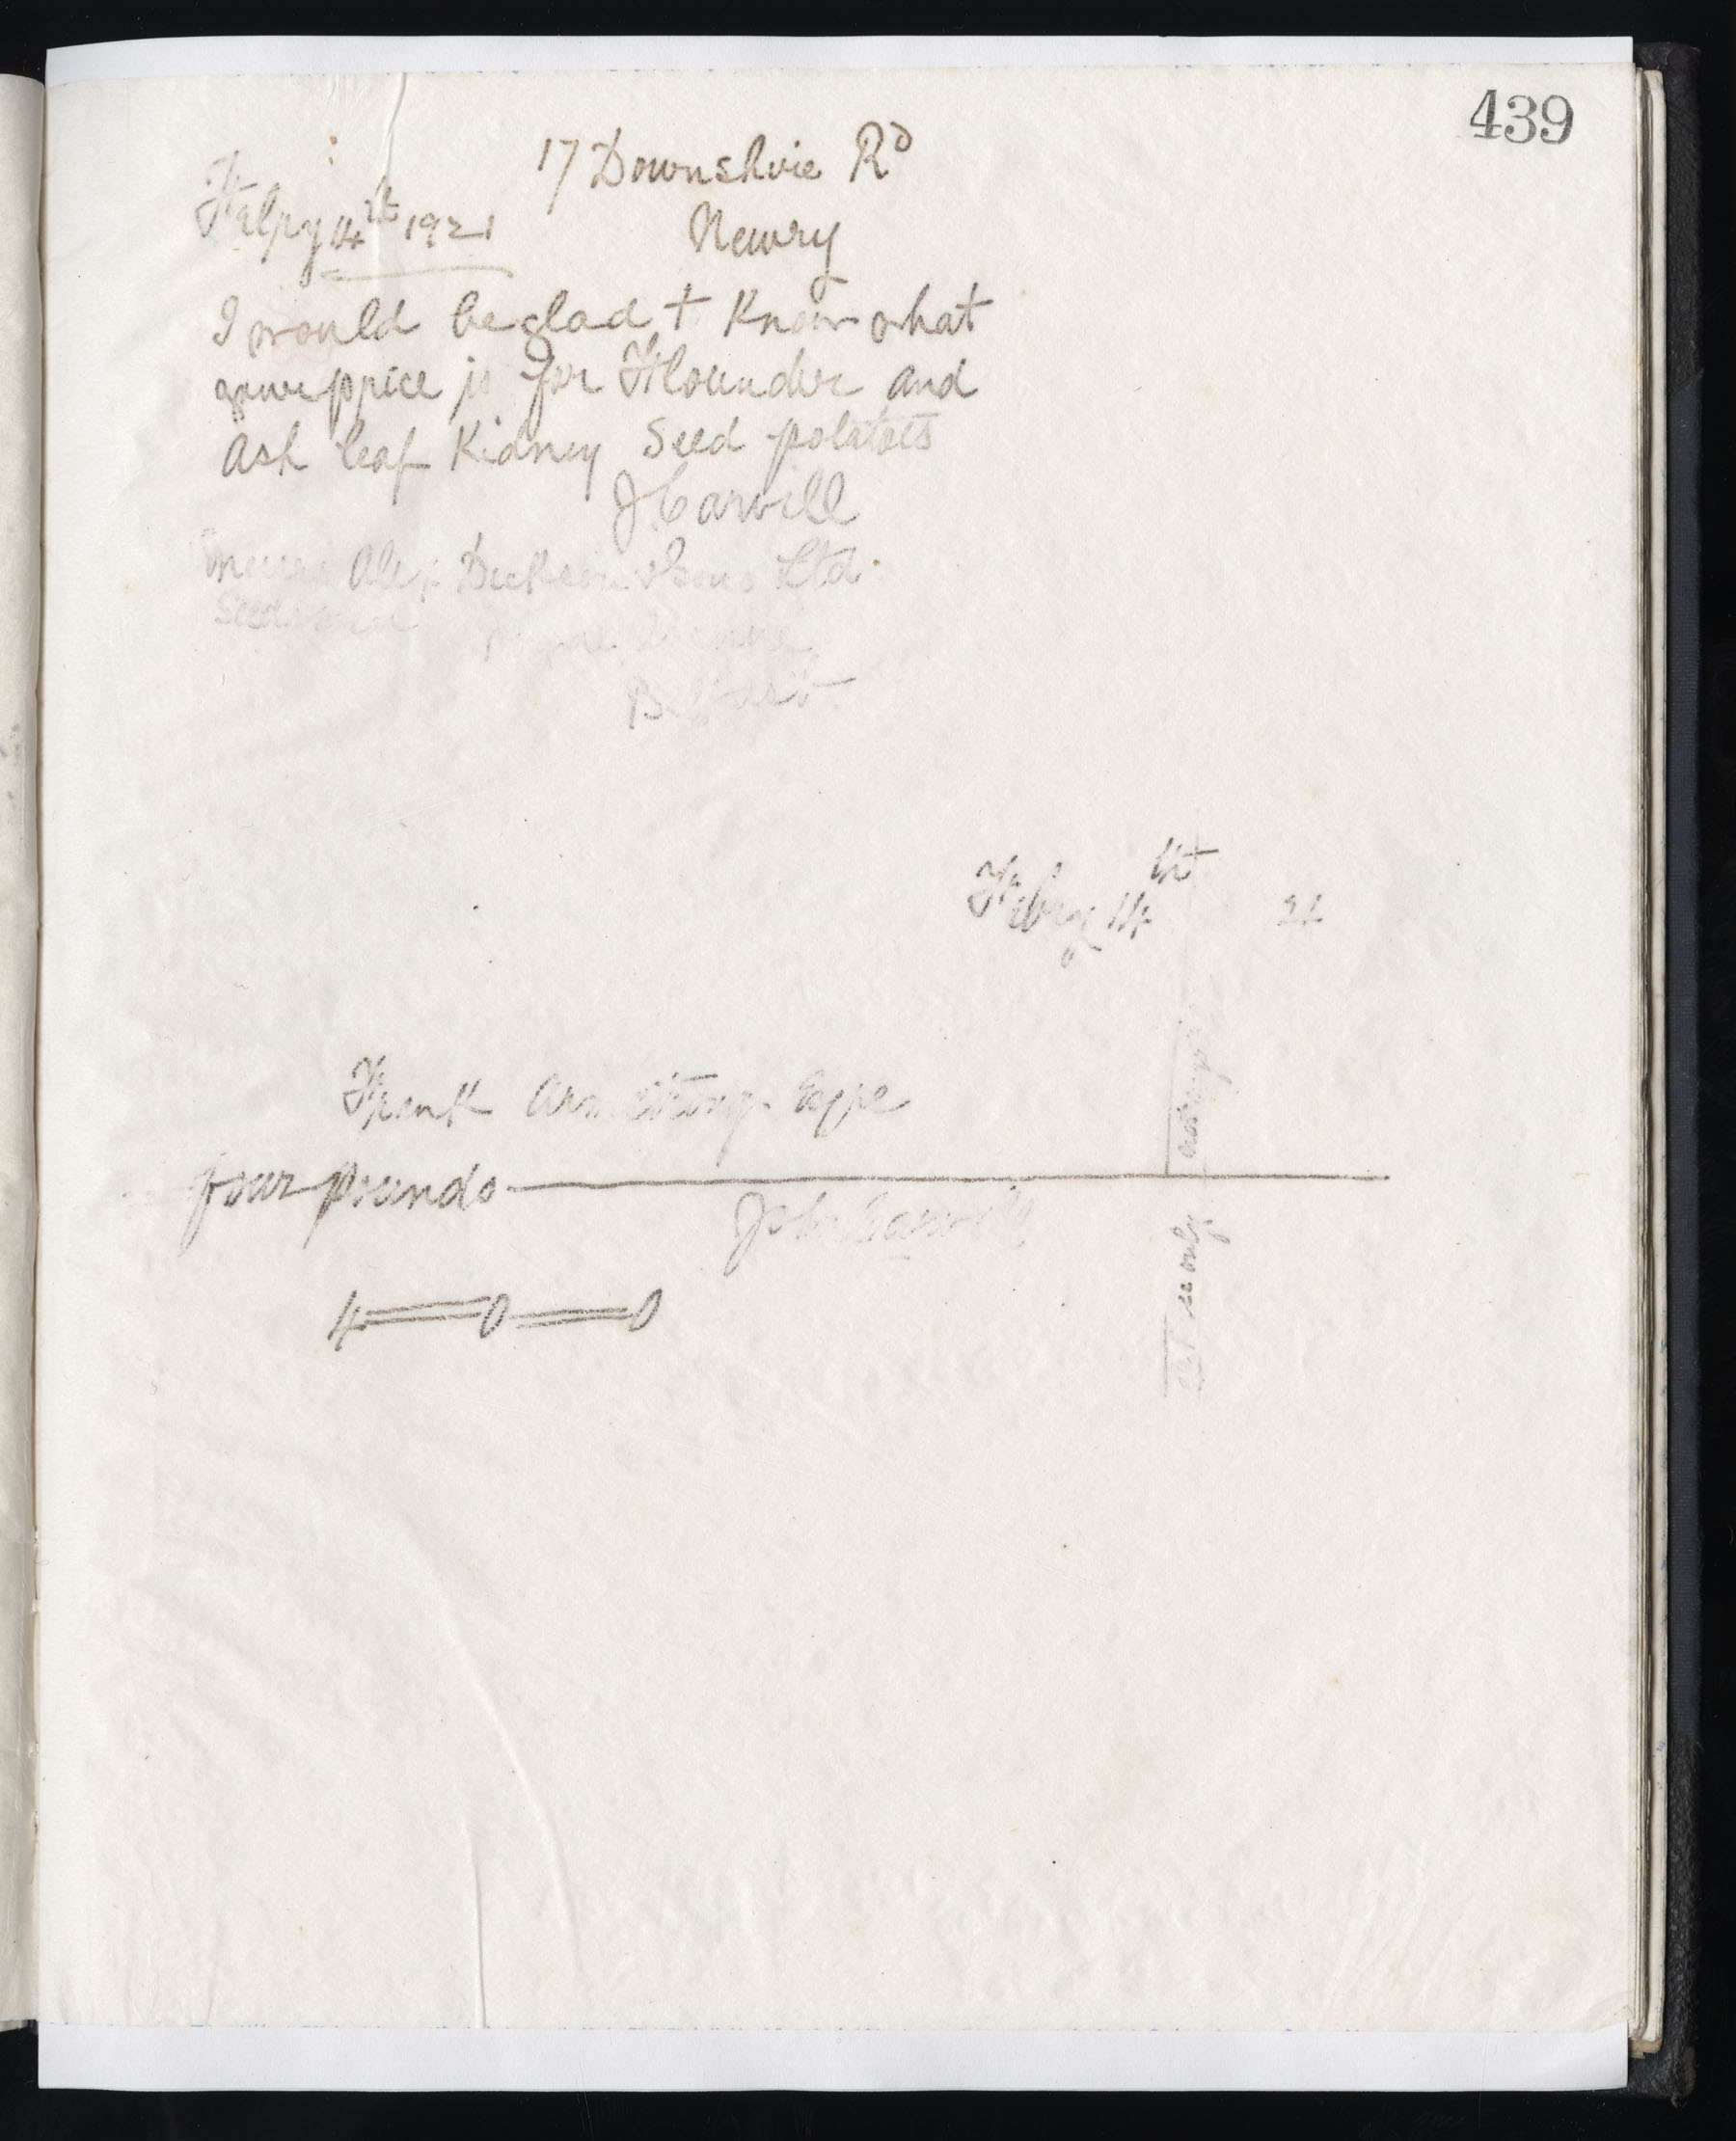 439
17 Downshire Rd
Febry 4th 1921
Newry
I would be glad t know what
your price is for Flounder and
Ash leaf Kidney Seed potatoes
J Carvill
Messrs Alex Dickson & Sons Ltd
Seedsmen
Royal Avenue
Belfast
Febry 14th 21
Frank Armstrong Esqre
four pounds
John Carvill
4 = 0 = 0
not negotiable
a/c payee only